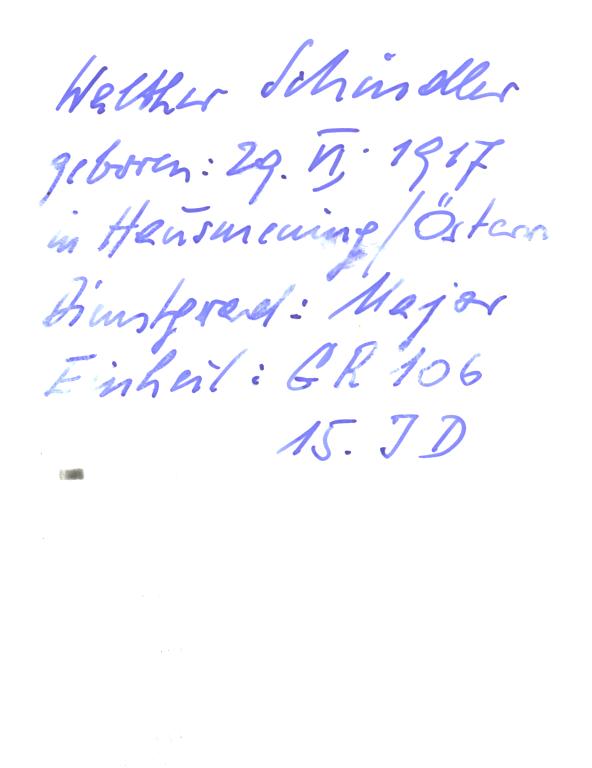 Walther Schindler
geboren: 29. VI. 1917
in Hausmening/Österr
Dienstgrad: Major
Einheil: GR 106
15. ID